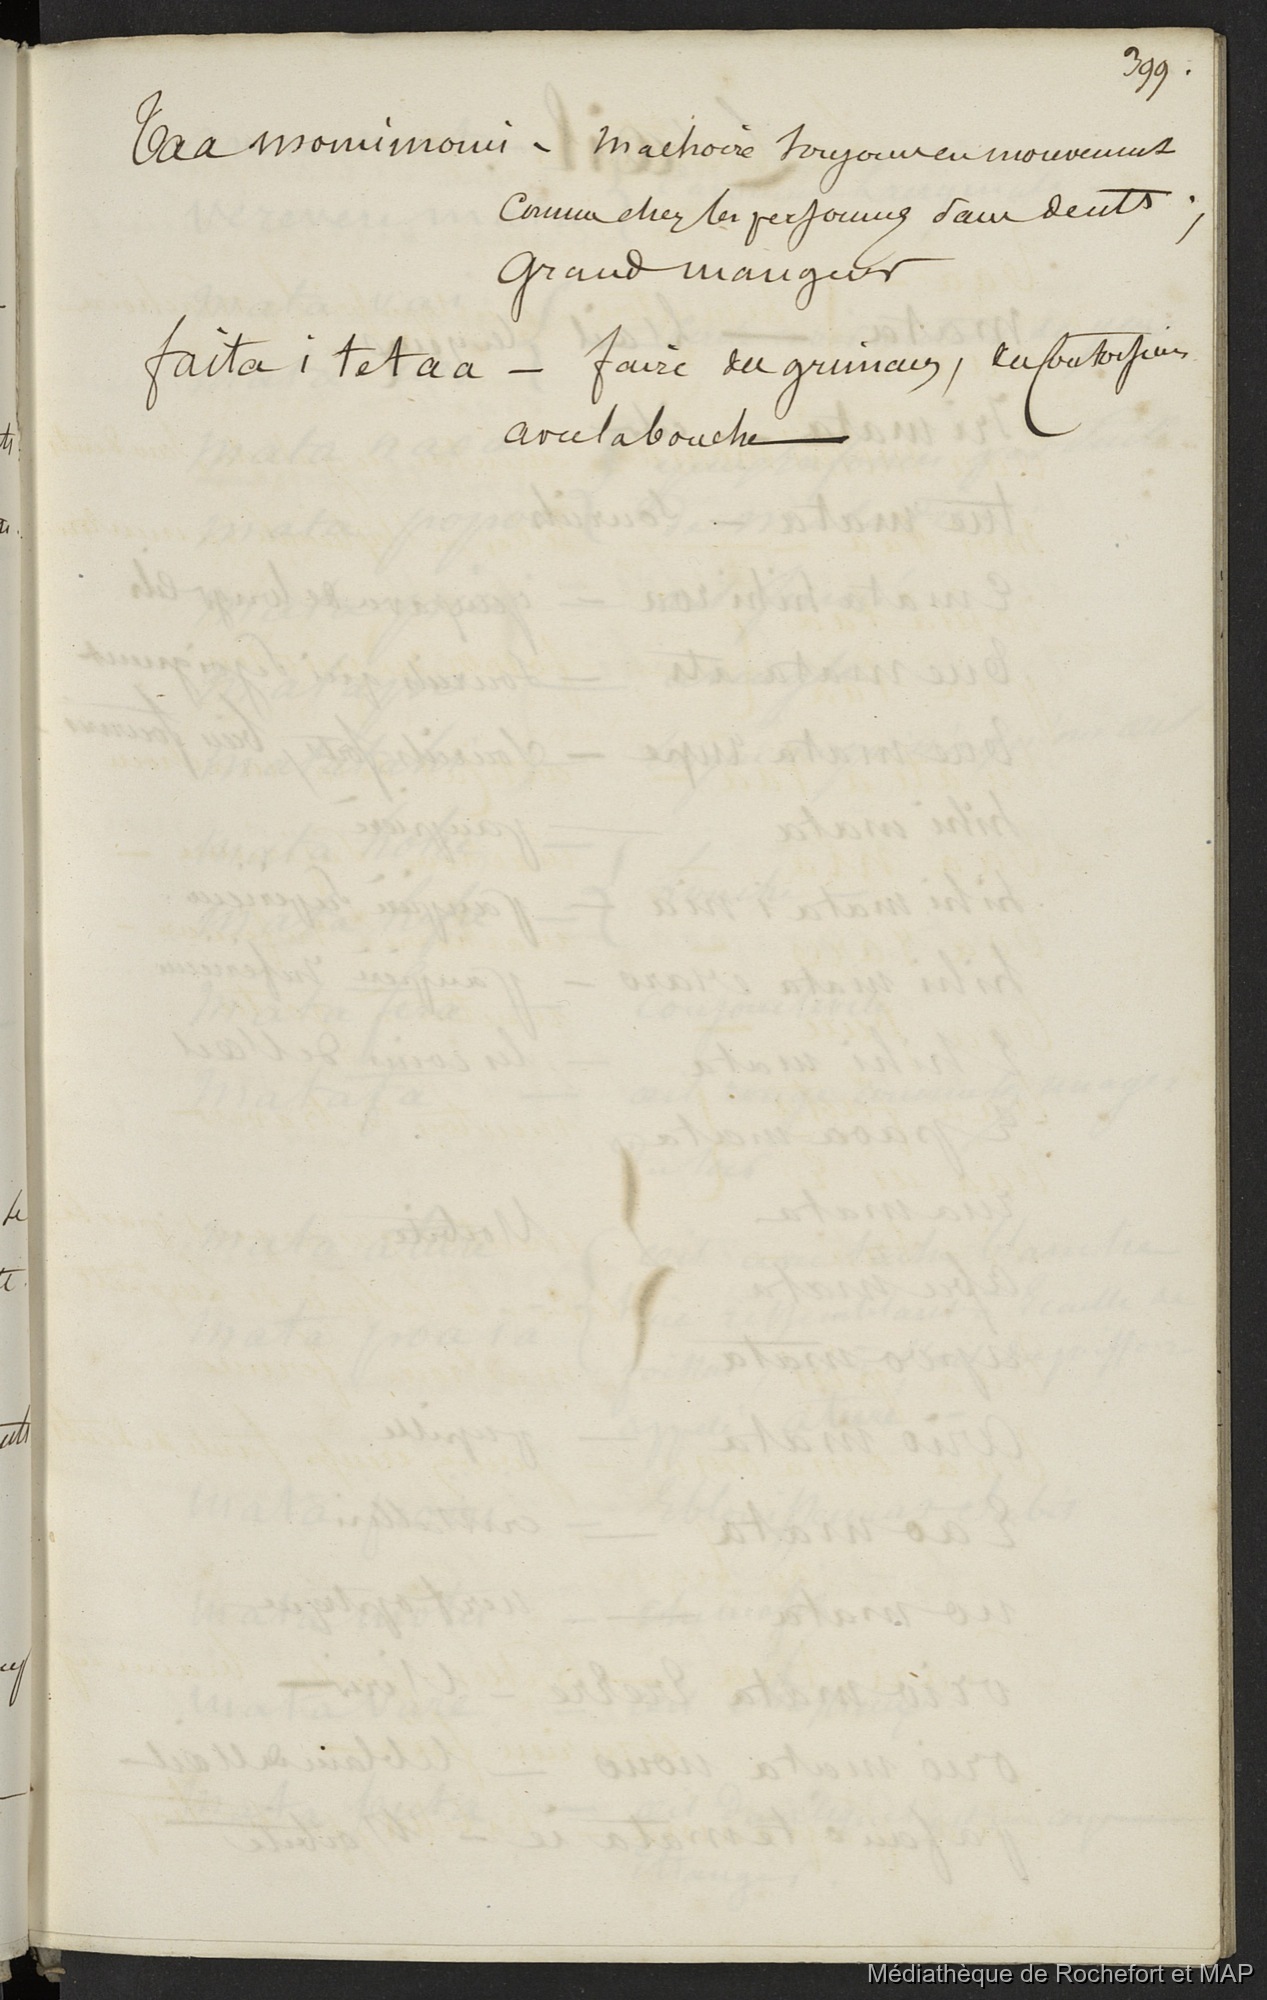 399.
Taa momimomi - machoire toujours en mouvement
comme chez les personnes sans dents ;
Grand mangeur
faita i te taa — faire des grimaces, des contorsions
avec la bouche —
Médiathèque de Rochefort et MAP